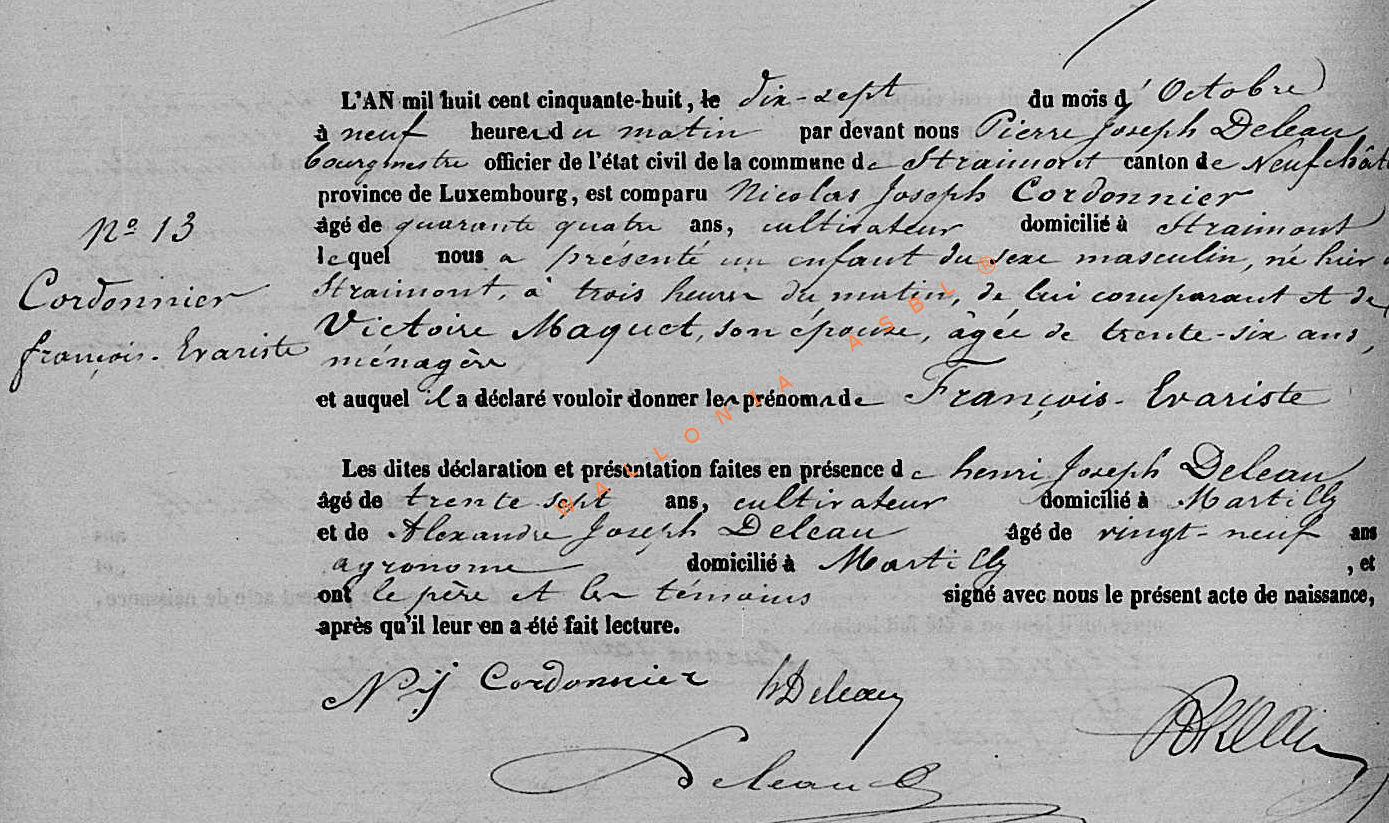 L'AN mil huit cent cinquante-huit, le dix-sept du mois d'Octobre
à neuf heures du matin par devant nous Pierre Joseph Deleau,
bourgmestre officier de l'état civil de la commune de Straimont canton de Neufchât
province de Luxembourg, est comparu Nicolas Joseph Cordonnier
âgé de quarante quatre ans, cultivateur domicilié à Straimont
lequel nous a présenté un enfant du sexe masculin, né hier à
Straimont, à trois heures du matin, de lui comparant et de
Victoire Maquet, son épouse, âgée de trente-six ans,
ménagère
et auquel il a déclaré vouloir donner les prénoms de François-Evariste
Nº 13
Cordonnier
françois-Evariste
Les dites déclaration et présentation faites en présence de henri Joseph Deleau
âgé de trente sept ans, cultivateur domicilié à Martilly
et de Alexandre Joseph Deleau âgé de vingt-neuf ans
agronome domicilié à Martilly, et
ont le père et les témoins signé avec nous le présent acte de naissance,
après qu'il leur en a été fait lecture.
N. j Cordonnier hDeleau
Deleau
WALLONIA ASBL ®